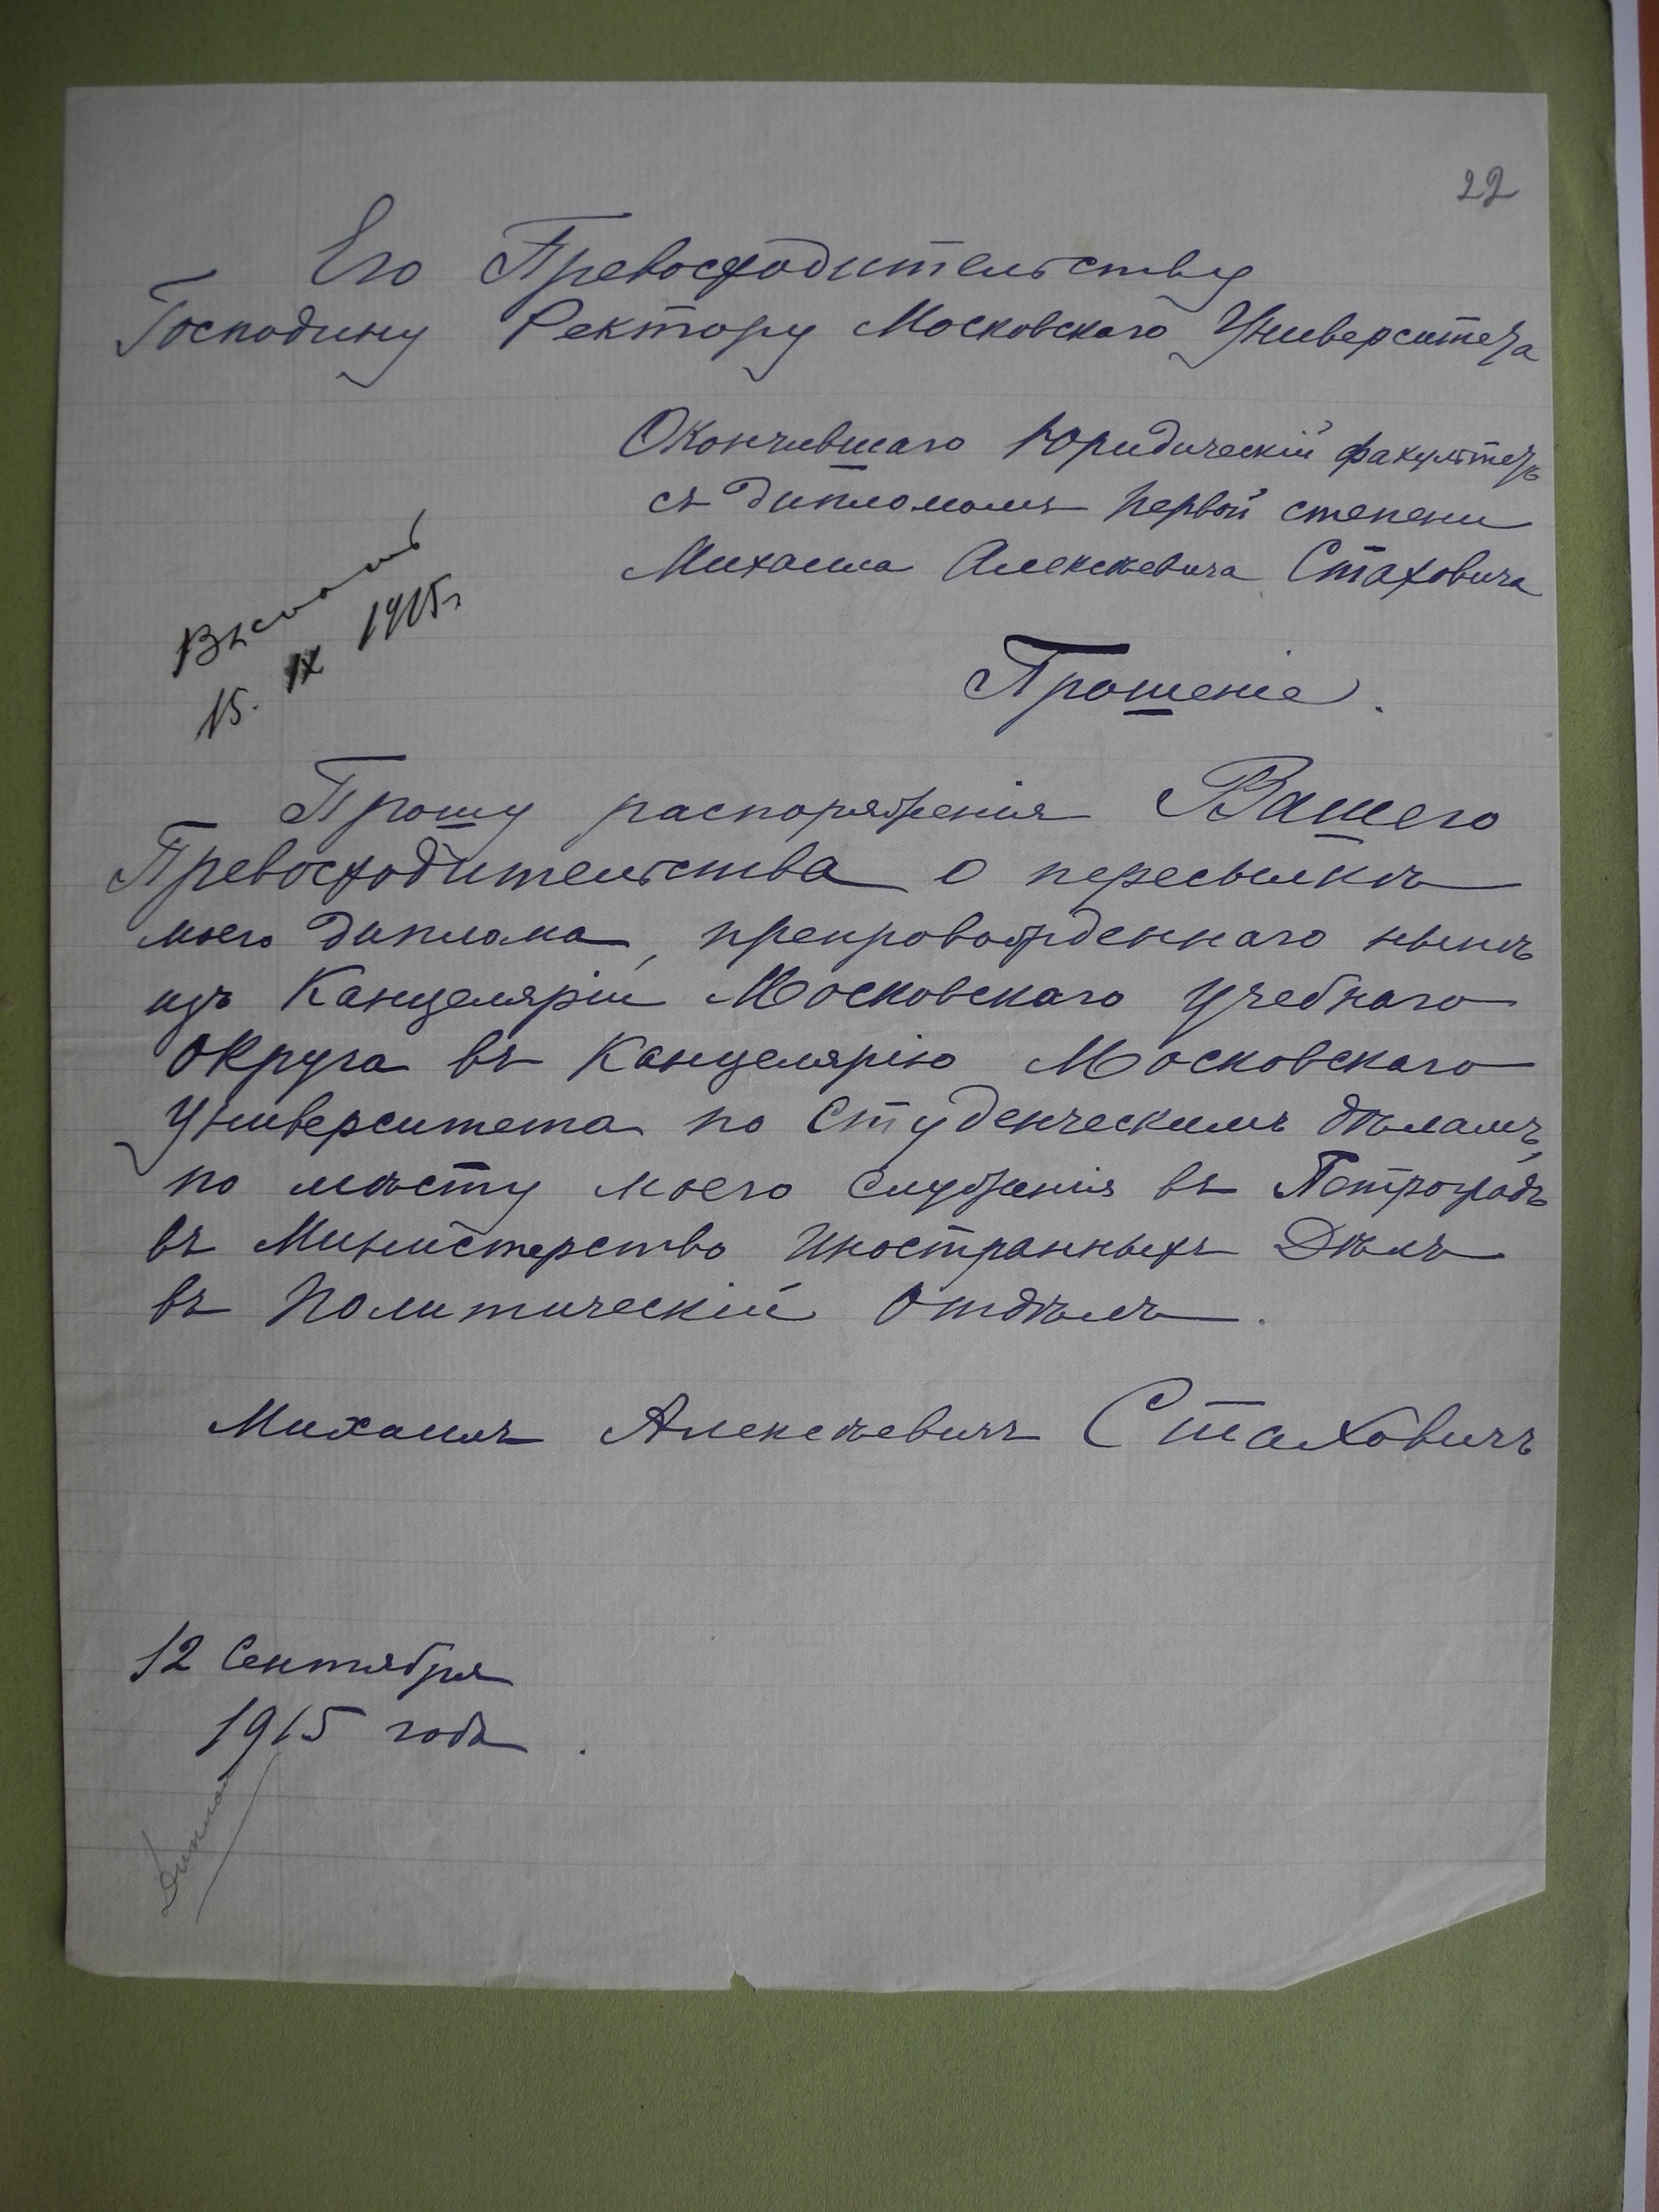 22
Его Превосходительству
Господину Ректору Московскаго Университета
Окончившаго Юридическій факультетъ
съ дипломомъ первой степени
Михаила Алексѣевича Стаховича
Выслать
15. IX 1915 г.
Прошеніе.
Прошу распоряженія Вашего
Превосходительства о пересылкѣ
моего диплома, препровожденнаго нынѣ
изъ Канцеляріи Московскаго Учебнаго
Округа въ Канцелярію Московскаго
Университета по Студенческимъ дѣламъ,
по мѣсту моего служенія въ Петроградъ
въ Министерство Иностранныхъ Дѣлъ
въ Политическій Отдѣлъ.
Михаилъ Алексѣевичъ Стаховичъ
12 Сентября
1915 года.